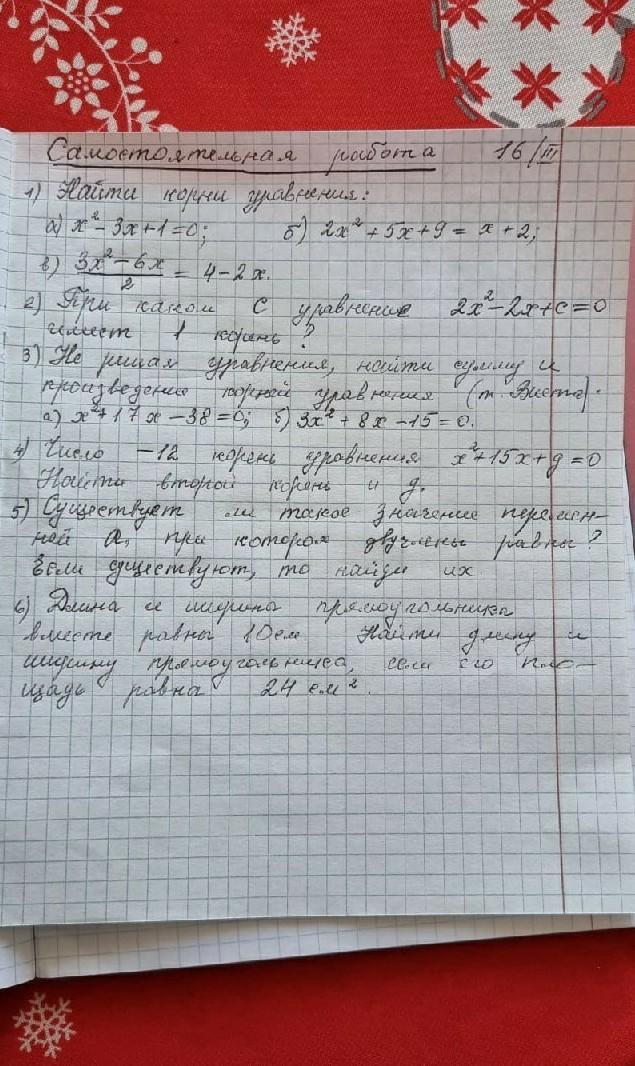 Самостоятельная работа 16/III
1) Найти корни уравнения:
а) x² - 3x + 1 = 0; б) 2x² + 5x + 9 = x + 2;
в) (3x² - 6x)/2 = 4 - 2x.
2) При каком c уравнение 2x² - 2x + c = 0
имеет 1 корень?
3) Не решая уравнения, найти сумму и
произведение корней уравнения (т. Виета).
а) x² + 17x - 38 = 0; б) 3x² + 8x - 15 = 0.
4) Число -12 корень уравнения x² + 15x + g = 0
Найти второй корень и g.
5) Существует ли такое значение перемен-
ной a, при котором двучлены равны?
Если существуют, то найди их
6) Длина и ширина прямоугольника
вместе равны 10см Найти длину и
ширину прямоугольника, если его пло-
щадь равна 24 см².